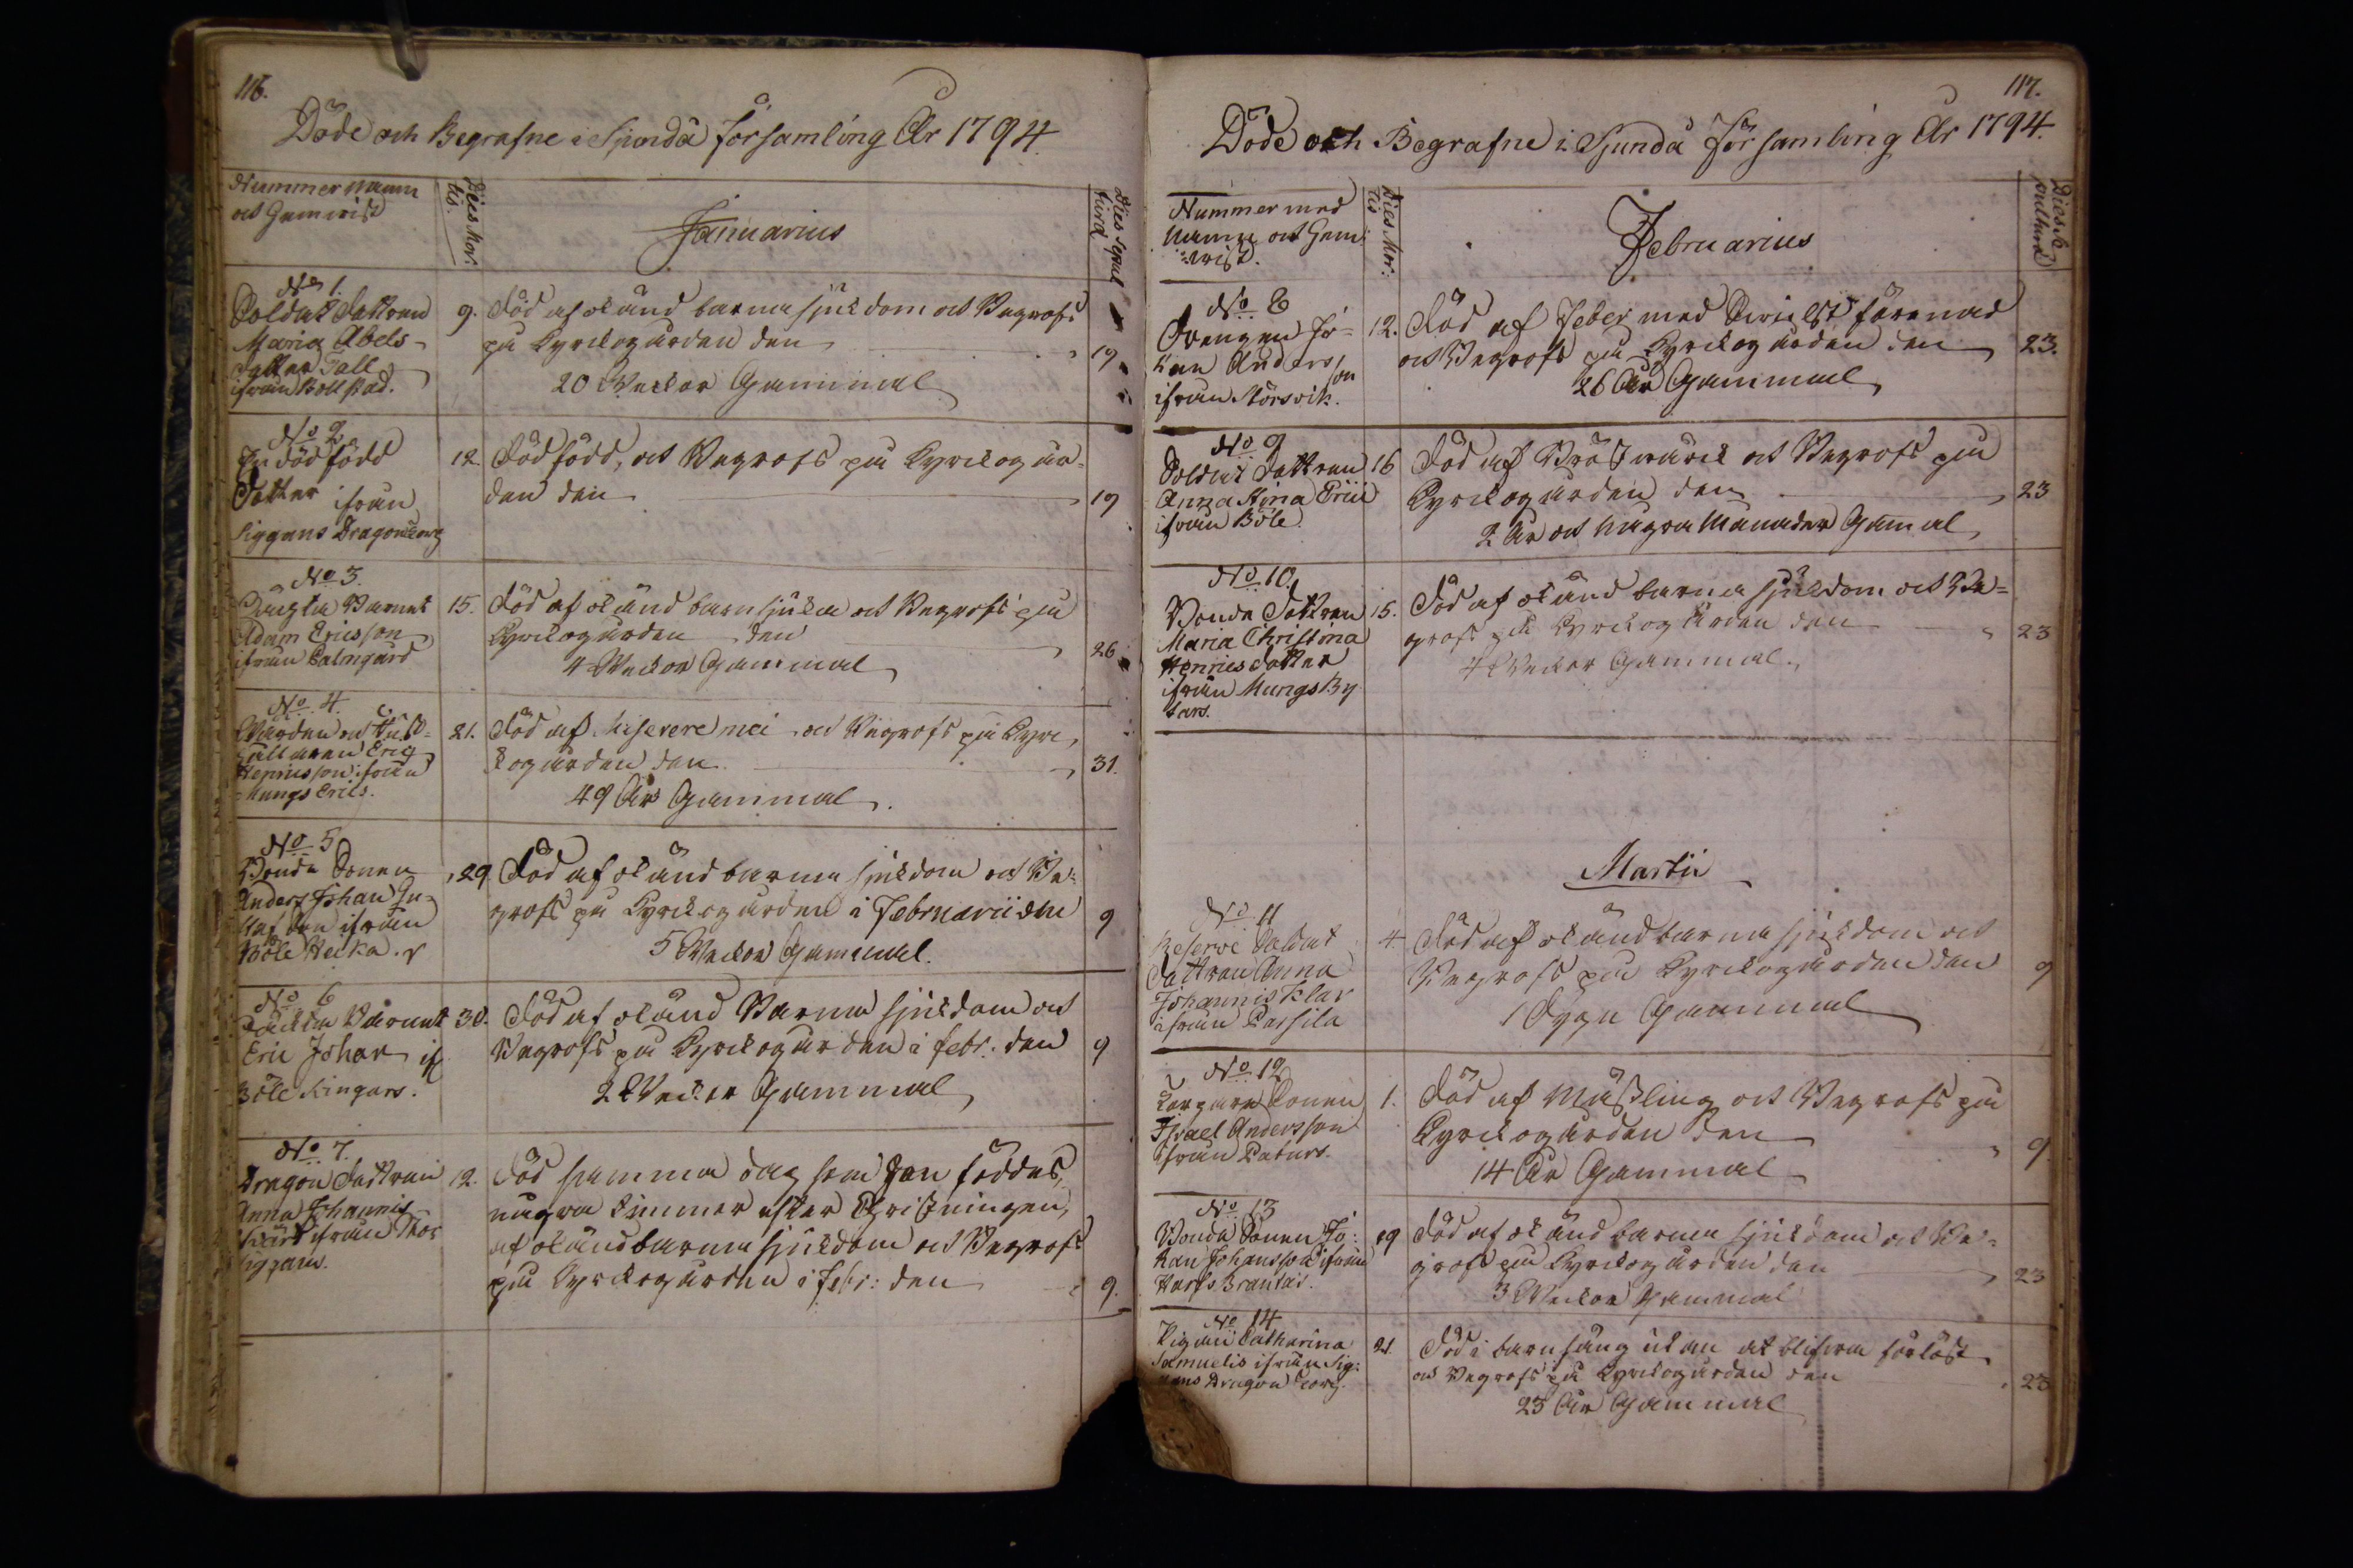 116.
Döde och Begrafne i Sjundå Församling År 1794.
Nummer namn
och Hemvist
Dies Mor:
tis.
Januarius
Dies Sepul
turæ
No 1.
Soldat Dottren
Maria Abels
dotter Tall
ifrån Bollstad.
9.
Död af okänd barnasjukdom och Begrofs
på Kyrkogården den
20 Veckor Gammal
19
No 2.
En dödfödd
Dotter ifrån
Siggans Dragontorp
12.
Dödfödd, och Begrofs på Kyrkogår-
den den
19
No 3.
Barnet
Adam Ericsson
ifrån Palmgård
15.
Död af okänd barnsjuka och Begrofs på
Kyrkogården den
4 Veckor Gammal
26
No 4.
Värden och
Eric
Henricsson ifrån
Mungs Erics.
21.
Död af Miserere mei och Begrofs på Kyr-
kogården den
49 År Gammal.
31.
No 5
Bonde Sonen
Anders Johan Gu-
staf son ifrån
Böle Hecka.
29
Död af okänd barnasjukdom och Be-
grofs på Kyrkogården i Februarii den
5 Veckor Gammal.
9
No 6
Barnet
Eric Johan if
Böle Ringars.
30.
Död af okänd Barna sjukdom och
Begrofs på Kyrkogården i Febr. den
2 Veckor Gammal
9
No 7.
Dragon Dottren
Anna Johannis
ifrån
Siggans.
12.
Död samma dag som han föddes,
några timmar efter Christningen,
af okänd barnasjukdom och Begrofs
på Kyrkogården i Febr: den
9.
117.
Döde och Begrafne i Sjundå Församling År 1794.
Nummer med
namn och Hem-
vist.
Dies Mor:
tis
Februarius
Dies Se
pulturæ
No 8
Drengen Jo-
han Andersson
ifrån Störsvik.
12.
Död af Feber med förenad
och Begrofs på Kyrkogården den
26 År Gammal
23.
No 9
Soldat Dottren
Anna Stina
ifrån Böle
16
Död af Bröstvärck och Begrofs på
Kyrkogården den
2 År och några Månader Gammal
23
No 10.
Bonde Dottren
Maria Christina
Henricsdotter
ifrån Mungs By
15.
Död af okänd barna sjukdom och Be-
grofs på Kyrkogården den
4 Veckor Gammal.
23
Martii
No 11
Reserve Soldat
Dottren Anna
Johannis Klar
ifrån Passila
4
Död af okänd barna sjukdom och
Begrofs på Kyrkogården den
1 Dygn Gammal
9
No 12
Torpare Sonen
Israel Andersson
ifrån
1.
Död af Mäßling och Begrofs på
Kyrkogården den
14 År Gammal
9
No 13
Bonde Sonen Jo-
han Johansson ifrån
19
Död af okänd barna sjukdom och Be-
grofs på Kyrkogården den
3 Veckor Gammal
23
No 14
Pigan Catharina
Samuelis ifrån Sig-
gans Dragon torp.
21.
Död i barnsäng utan at blifva förlöst
och Begrofs på Kyrkogården den
23 År Gammal
23